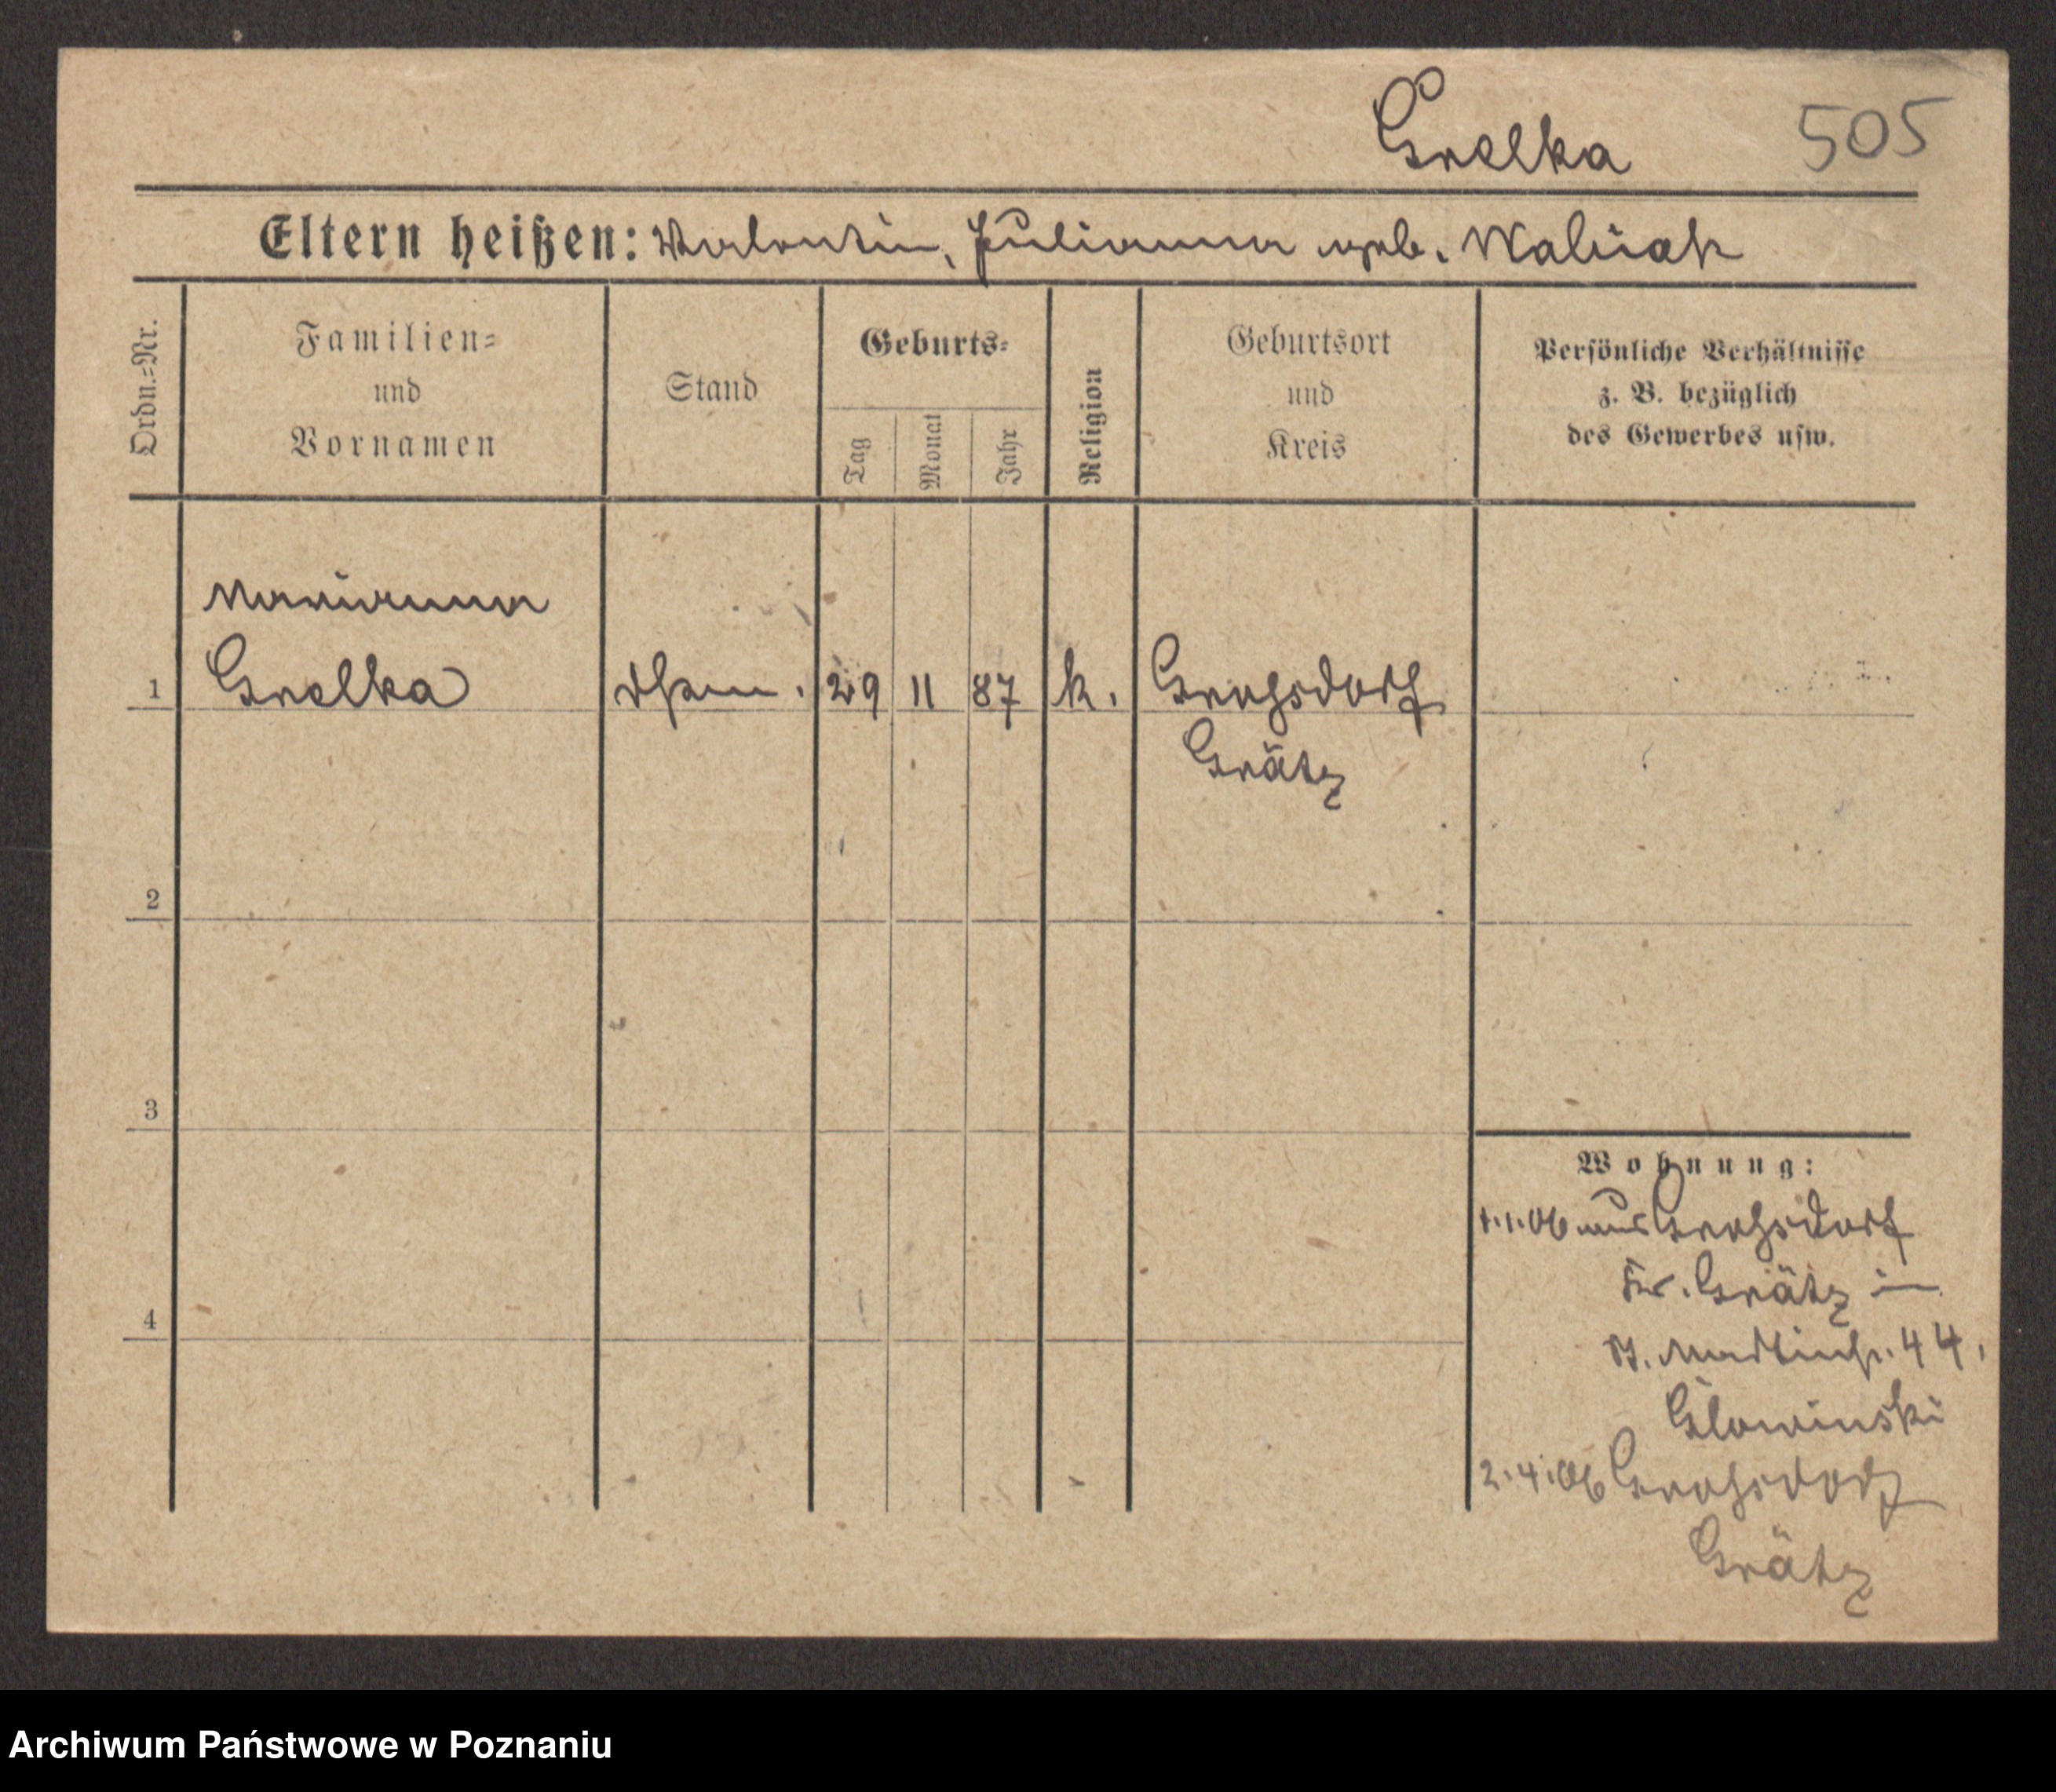 Grelka 505
Eltern heißen: Valentin, Julianna geb. Waliciak
Ordn.=Nr.
Familien=
und
Vornamen
Stand
Geburts=
Tag
Monat
Jahr
Religion
Geburtsort
und
Kreis
Persönliche Verhältnisse
z. B. bezüglich
des Gewerbes usw.
Marianna
1 Grelka 29 11 87 k. Grohsdorf
Grätz
2
3
4
Wohnung:
1.1.06 aus Grohsdorf
Kr. Grätz in
St. Martinstr. 44,
Glowinski
2.4.06 Grohsdorf
Grätz
Archiwum Państwowe w Poznaniu